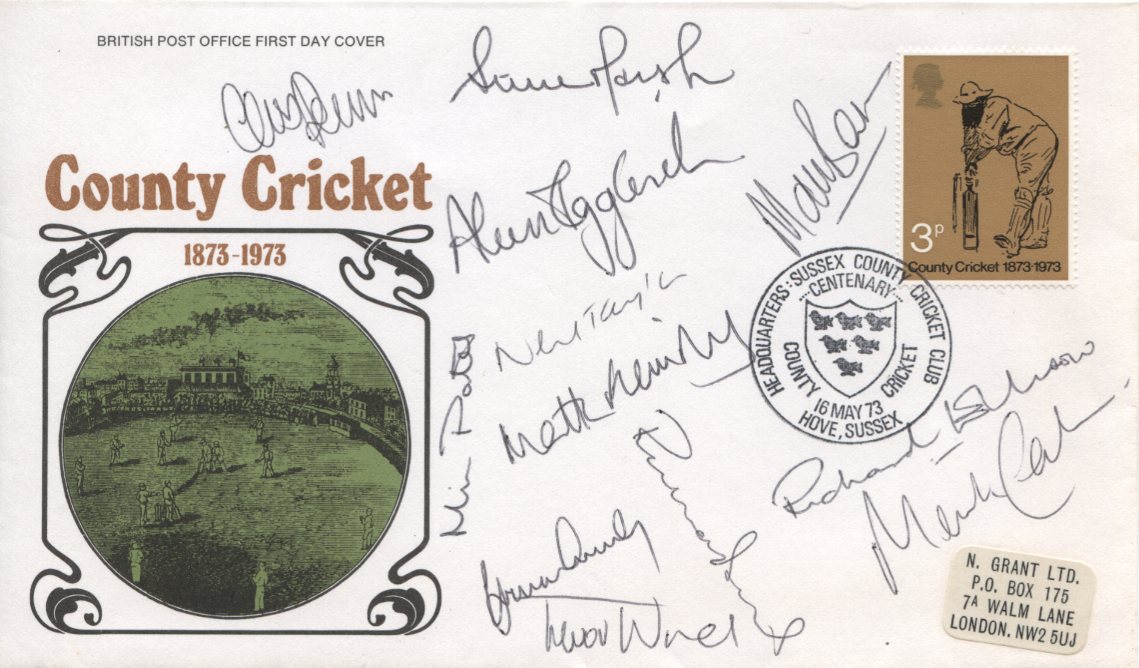 BRITISH POST OFFICE FIRST DAY COVER
County Cricket
1873-1973
3P
County Cricket 1873-1973
HEADQUARTERS: SUSSEX COUNTY CRICKET CLUB
CENTENARY
COUNTY CRICKET
16 MAY 73
HOVE, SUSSEX
Simon Marsh
Alan Igglesden
Neil Taylor
Richard Ellison
Trevor Ward
N. GRANT LTD.
P.O. BOX 175
7A WALM LANE
LONDON. NW2 5UJ